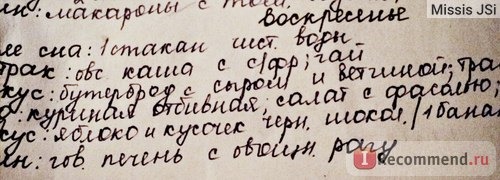 Missis JSi
ин: макароны с
воскресенье
ле сна: 1 стакан чист. воды
трак: овс. каша с с/фр; чай
кус: бутерброд с сыром и ветчиной; тра
д: куриная отбивная; салат с фасолью;
кус: яблоко и кусочек черн. шокол. / 1 бана
ин: гов. печень с овощн. рагу
iRecommend.ru